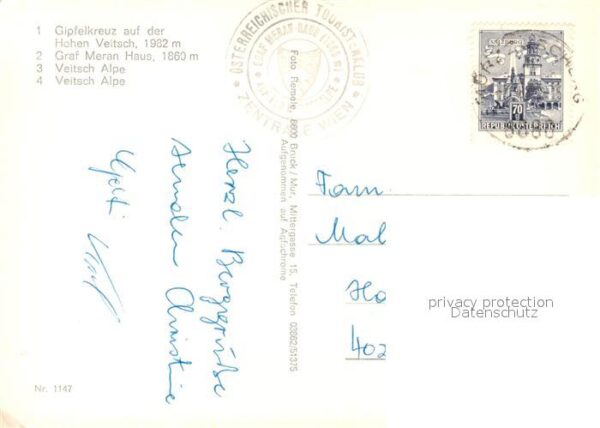 1 Gipfelkreuz auf der
Hohen Veitsch, 1982 m
2 Graf Meran Haus, 1860 m
3 Veitsch Alpe
4 Veitsch Alpe
ÖSTERREICHISCHER TOURISTENKLUB
GRAF MERAN-HAUS
ZENTRALE WIEN
Foto Remote, 8600 Bruck / Mur, Mittergasse 15, Telefon 03862/51375
Aufgenommen auf Agfachrome
70
REPUBLIK ÖSTERREICH
Herzl. Berggrüße
senden Christine
Fam.
Mal
Ho
402
privacy protection
Datenschutz
Nr. 1147